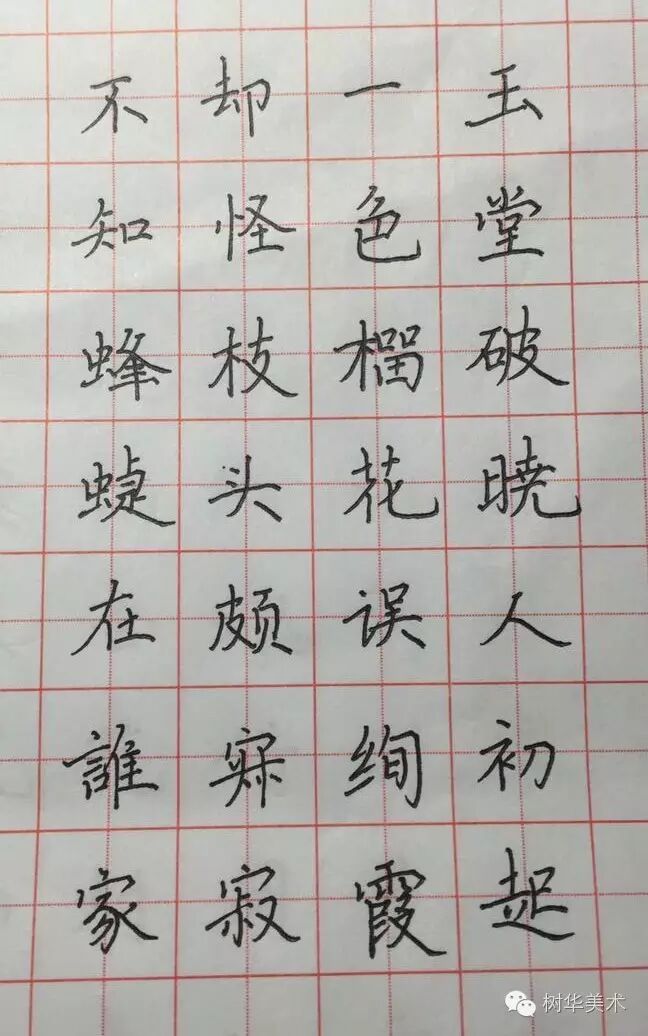 玉堂破暁人初起
一色榴花误绚霞
却怪枝头颇寂寂
不知蜂蜨在誰家
树华美术